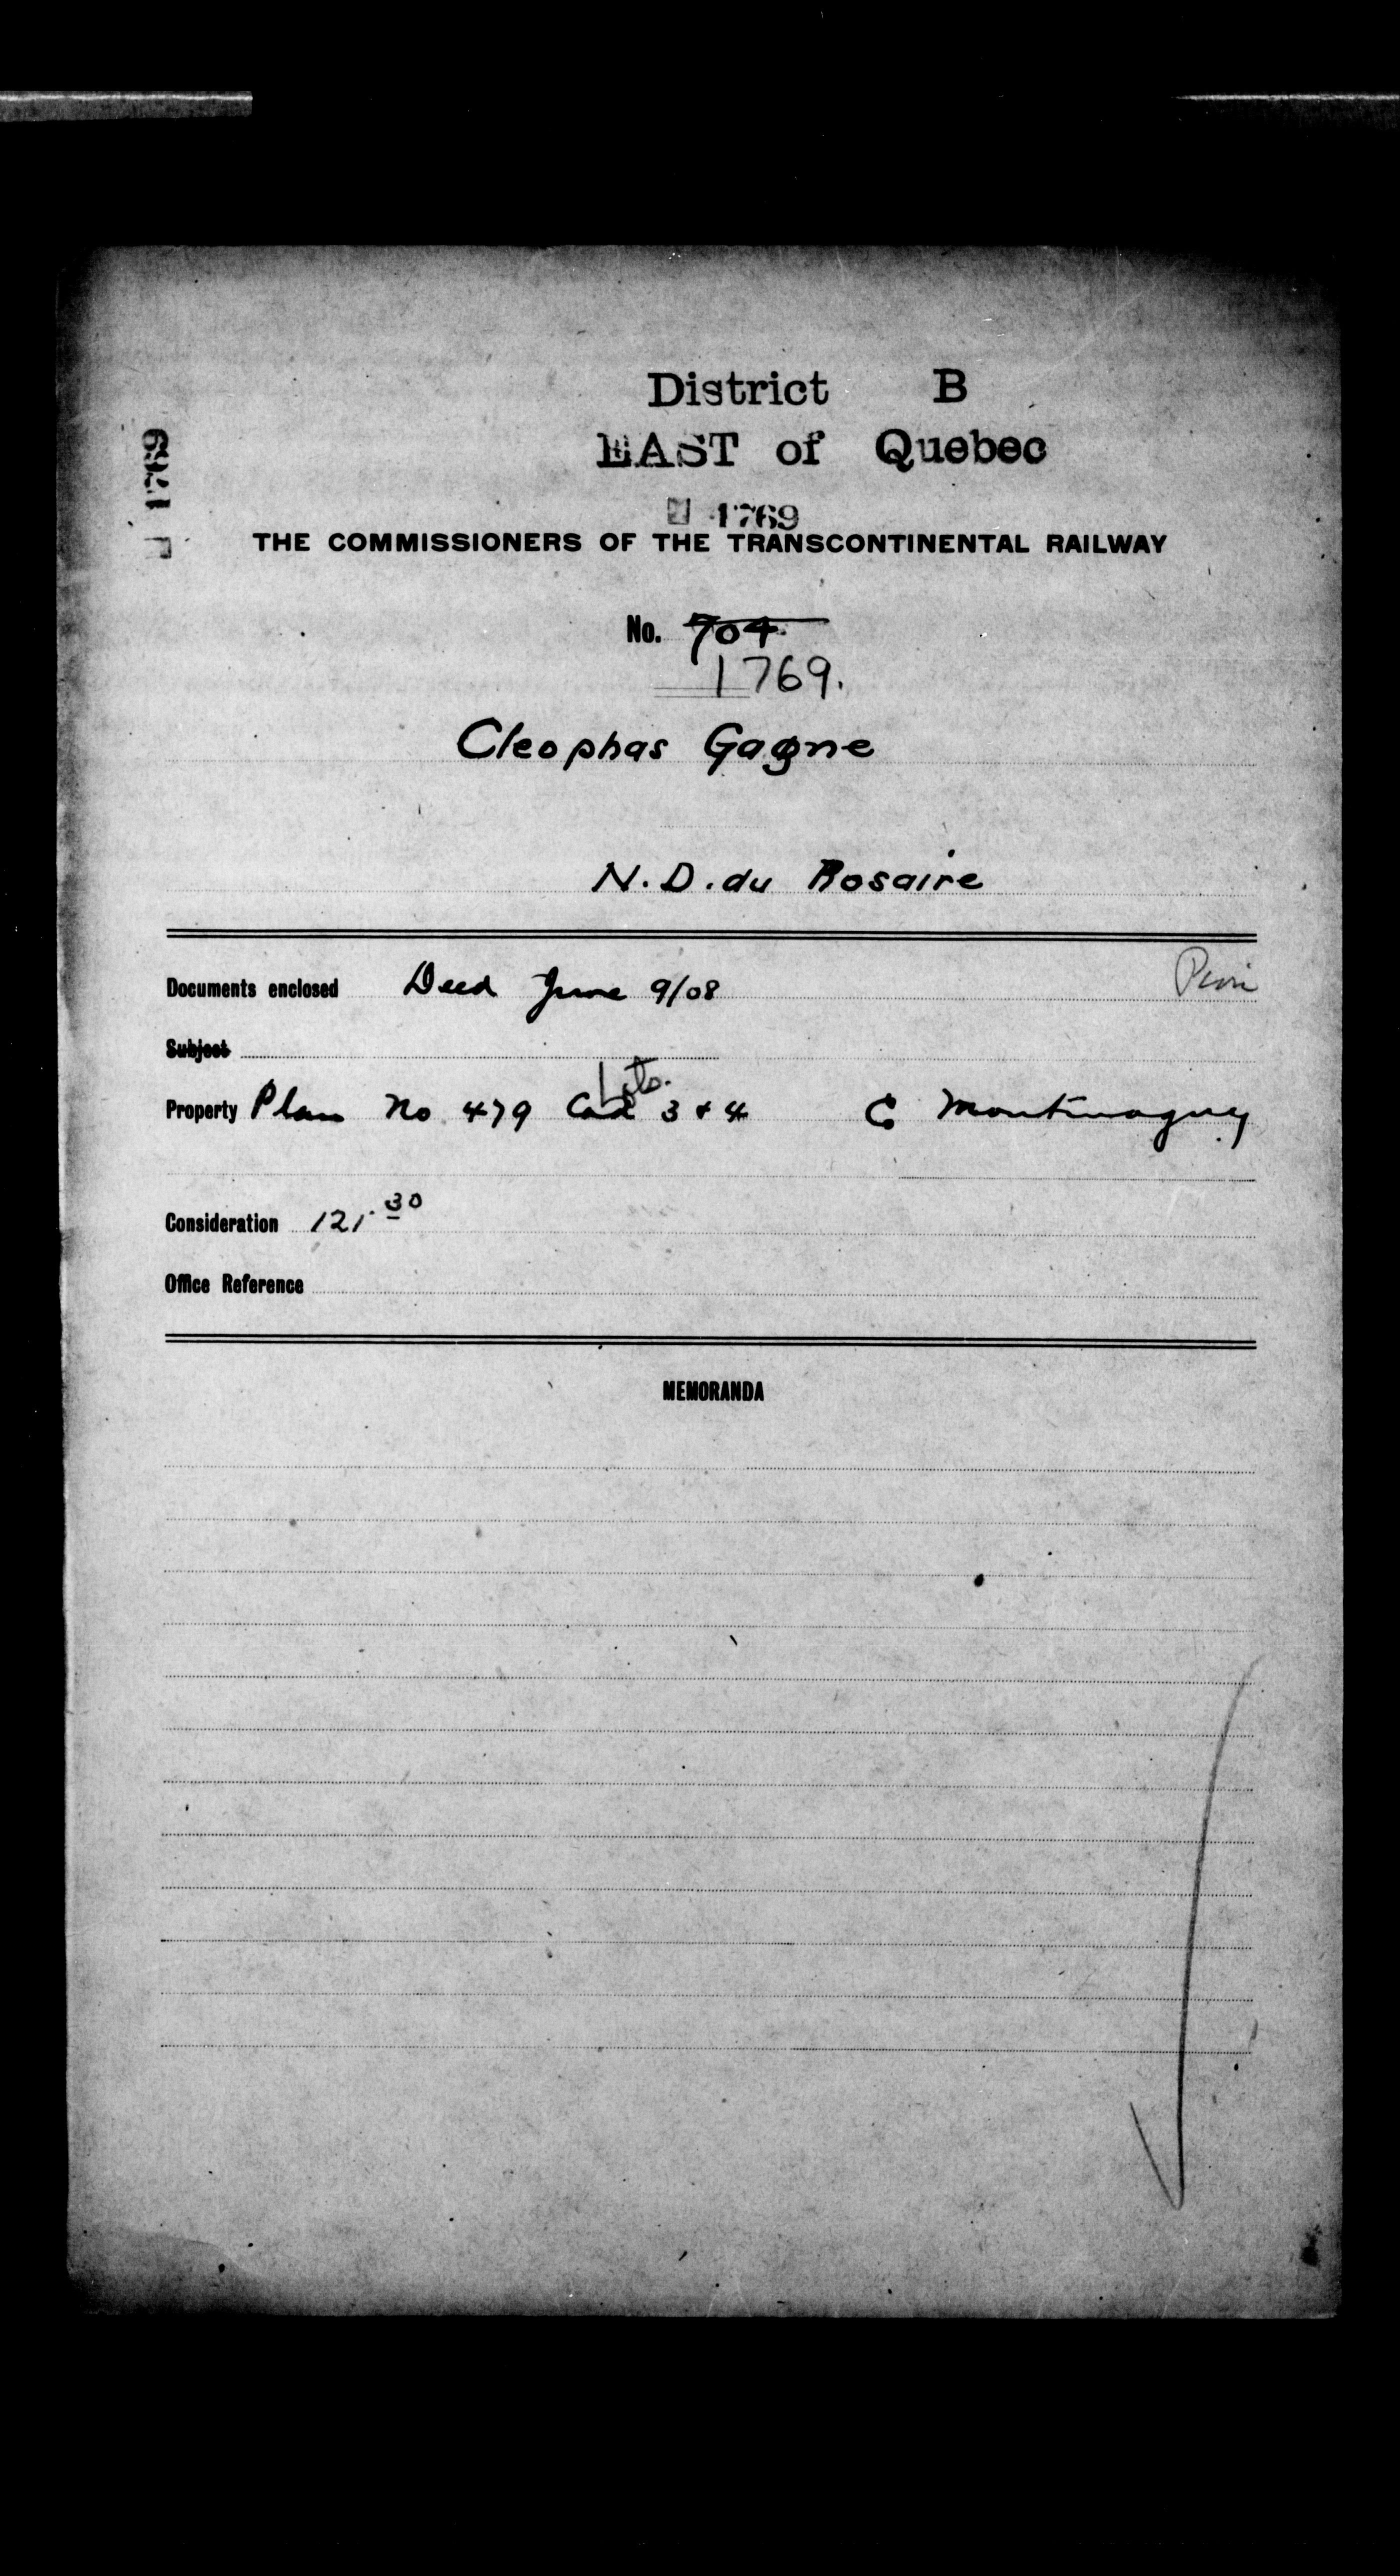 District B
EAST of Quebec
1769
1769
THE COMMISSIONERS OF THE TRANSCONTINENTAL RAILWAY
No. 704
1769.
Cleophas Gagne
N. D. du Rosaire
Documents enclosed Deed June 9/08
Subject
Lots.
Property Plan No 479 Cad 3 & 4 C Montmagny
Consideration 121.30
Office Reference
MEMORANDA